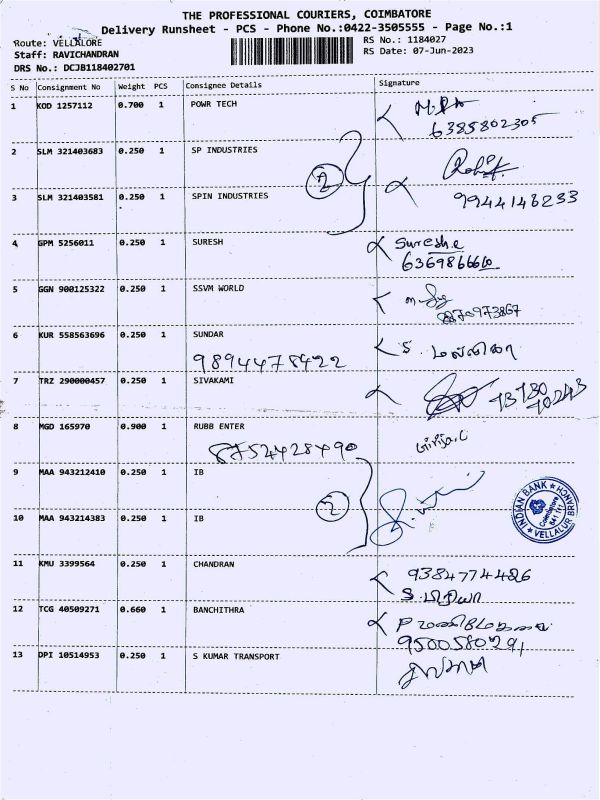 THE PROFESSIONAL COURIERS, COIMBATORE
Delivery Runsheet - PCS - Phone No.:0422-3505555 - Page No.:1
Route: VELLALORE
RS No.: 1184027
Staff: RAVICHANDRAN
RS Date: 07-Jun-2023
DRS No.: DCJB118402701
S No Consignment No Weight PCS Consignee Details Signature
1 KOD 1257112 0.700 1 POWR TECH
6385802305
2 SLM 321403683 0.250 1 SP INDUSTRIES
2
3 SLM 321403581 0.250 1 SPIN INDUSTRIES
9944146233
4 GPM 5256011 0.250 1 SURESH Sureshe
6369866660
5 GGN 900125322 0.250 1 SSVM WORLD
6 KUR 558563696 0.250 1 SUNDAR
9894478422
7 TRZ 290000457 0.250 1 SIVAKAMI
8 MGD 165970 0.900 1 RUBB ENTER
Girija.C
8754428490
9 MAA 943212410 0.250 1 IB
2
INDIAN BANK
VELLALUR BRANCH
Coimbatore
641 111
10 MAA 943214383 0.250 1 IB
11 KMU 3399564 0.250 1 CHANDRAN
9384774426
S. பிரியா
12 TCG 40509271 0.660 1 BANCHITHRA
9500580291
13 DPI 10514953 0.250 1 S KUMAR TRANSPORT